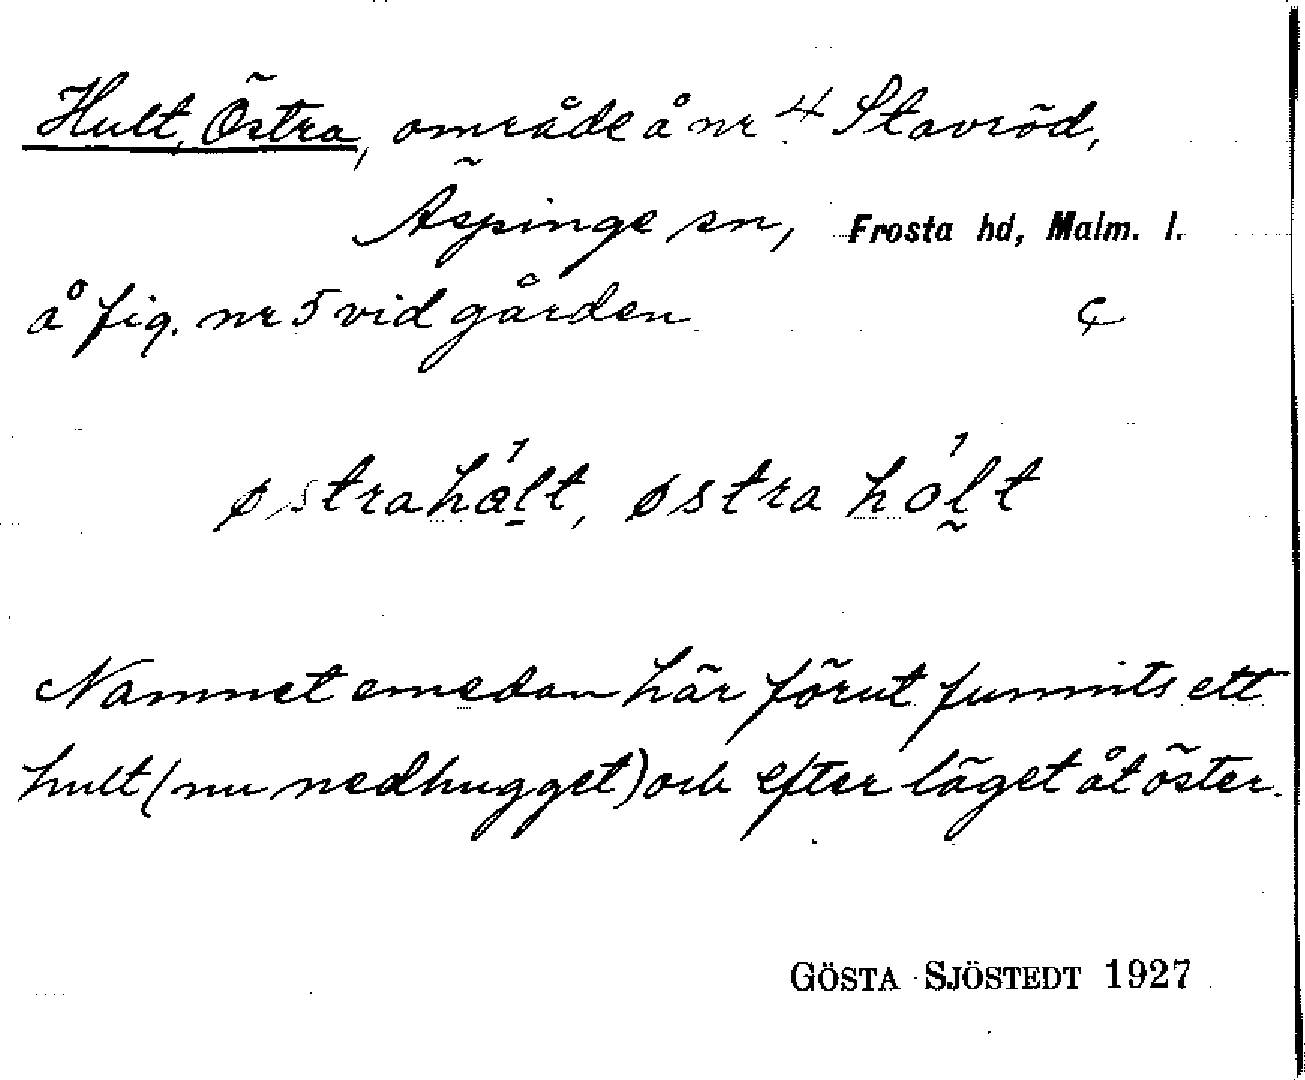 Hult, Östra, område å nr 4 Stavröd,
Äspinge sn, Frosta hd, Malm. l.
å fig. nr 5 vid gården
østrahålt, østra holt
Namnet emedan här förut funnits ett
hult (nu nedhugget) och efter läget åt öster.
GÖSTA SJÖSTEDT 1927